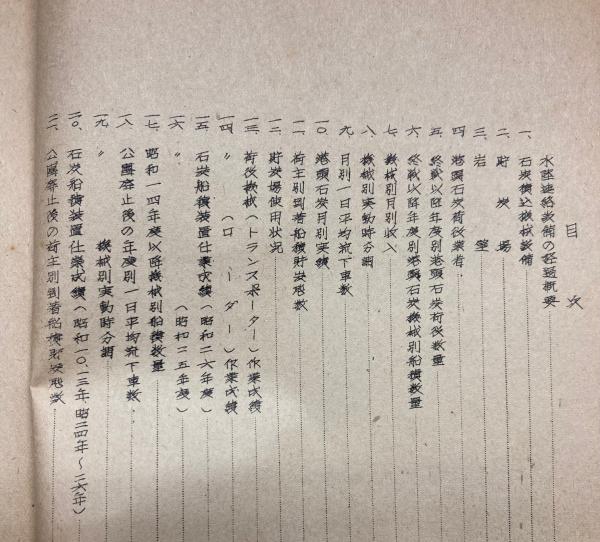 目次
水陸連絡設備の経過概要
一、石炭積込機械設備
二、貯炭場
三、岩壁
四、港頭石炭荷役業者
五、終戦以降年度別港頭石炭荷役数量
六、終戦以降年度別港頭石炭機械別船積数量
七、機械別月別収入
八、機械別実動時分調
九、月別一日平均流下車数
一〇、港頭石炭月別実績
一一、荷主別到着船積貯炭屯数
一二、貯炭場使用状況
一三、荷役機械(トランスポーター)作業成績
一四、〃(ローダー)作業成績
一五、石炭船積装置仕業成績(昭和二六年度)
一六、〃(昭和二五年度)
一七、昭和一四年度以降機械別船積数量
一八、公團廃止後の年度別一日平均流下車数
一九、〃機械別実動時分調
二〇、石炭船積装置仕業成績(昭和一〇、一三年、昭二四年~二六年)
二一、公團廃止後の荷主別到着船積貯炭屯数